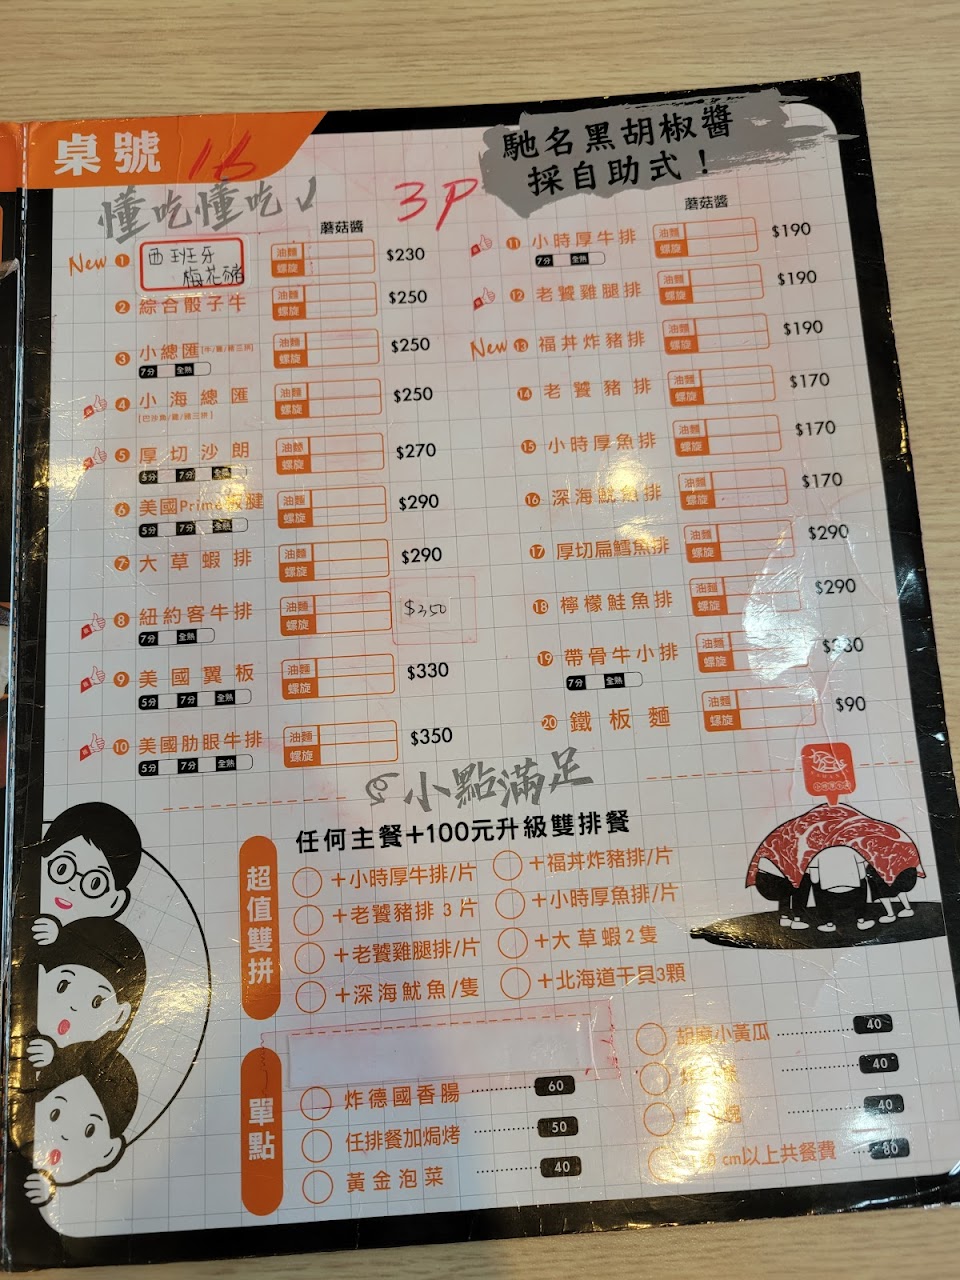 桌號 16
馳名黑胡椒醬
採自助式！
懂吃懂吃
3P
蘑菇醬
New 1 西班牙
梅花豬
油麵
螺旋
$230
2 綜合骰子牛
油麵
螺旋
$250
3 小總匯[牛/雞/豬三拼]
7分 全熟
油麵
螺旋
$250
4 小海總匯
[巴沙魚/雞/豬三拼]
油麵
螺旋
$250
5 厚切沙朗
5分 7分 全熟
油麵
螺旋
$270
6 美國Prime板腱
5分 7分 全熟
油麵
螺旋
$290
7 大草蝦排
油麵
螺旋
$290
8 紐約客牛排
7分 全熟
油麵
螺旋
$350
9 美國翼板
5分 7分 全熟
油麵
螺旋
$330
10 美國肋眼牛排
5分 7分 全熟
油麵
螺旋
$350
蘑菇醬
11 小時厚牛排
7分 全熟
油麵
螺旋
$190
12 老饕雞腿排
油麵
螺旋
$190
New 13 福丼炸豬排
油麵
螺旋
$190
14 老饕豬排
油麵
螺旋
$170
15 小時厚魚排
油麵
螺旋
$170
16 深海魷魚排
油麵
螺旋
$170
17 厚切扁鱈魚排
油麵
螺旋
$290
18 檸檬鮭魚排
油麵
螺旋
$290
19 帶骨牛小排
7分 全熟
油麵
螺旋
20 鐵板麵
油麵
螺旋
$90
小點滿足
任何主餐+100元升級雙排餐
超值雙拼
+小時厚牛排/片
+福丼炸豬排/片
+老饕豬排3片
+小時厚魚排/片
+老饕雞腿排/片
+大草蝦2隻
+深海魷魚/隻
+北海道干貝3顆
單點
炸德國香腸 60
任排餐加焗烤 50
黃金泡菜 40
胡麻小黃瓜 40
40
40
cm以上共餐費 80